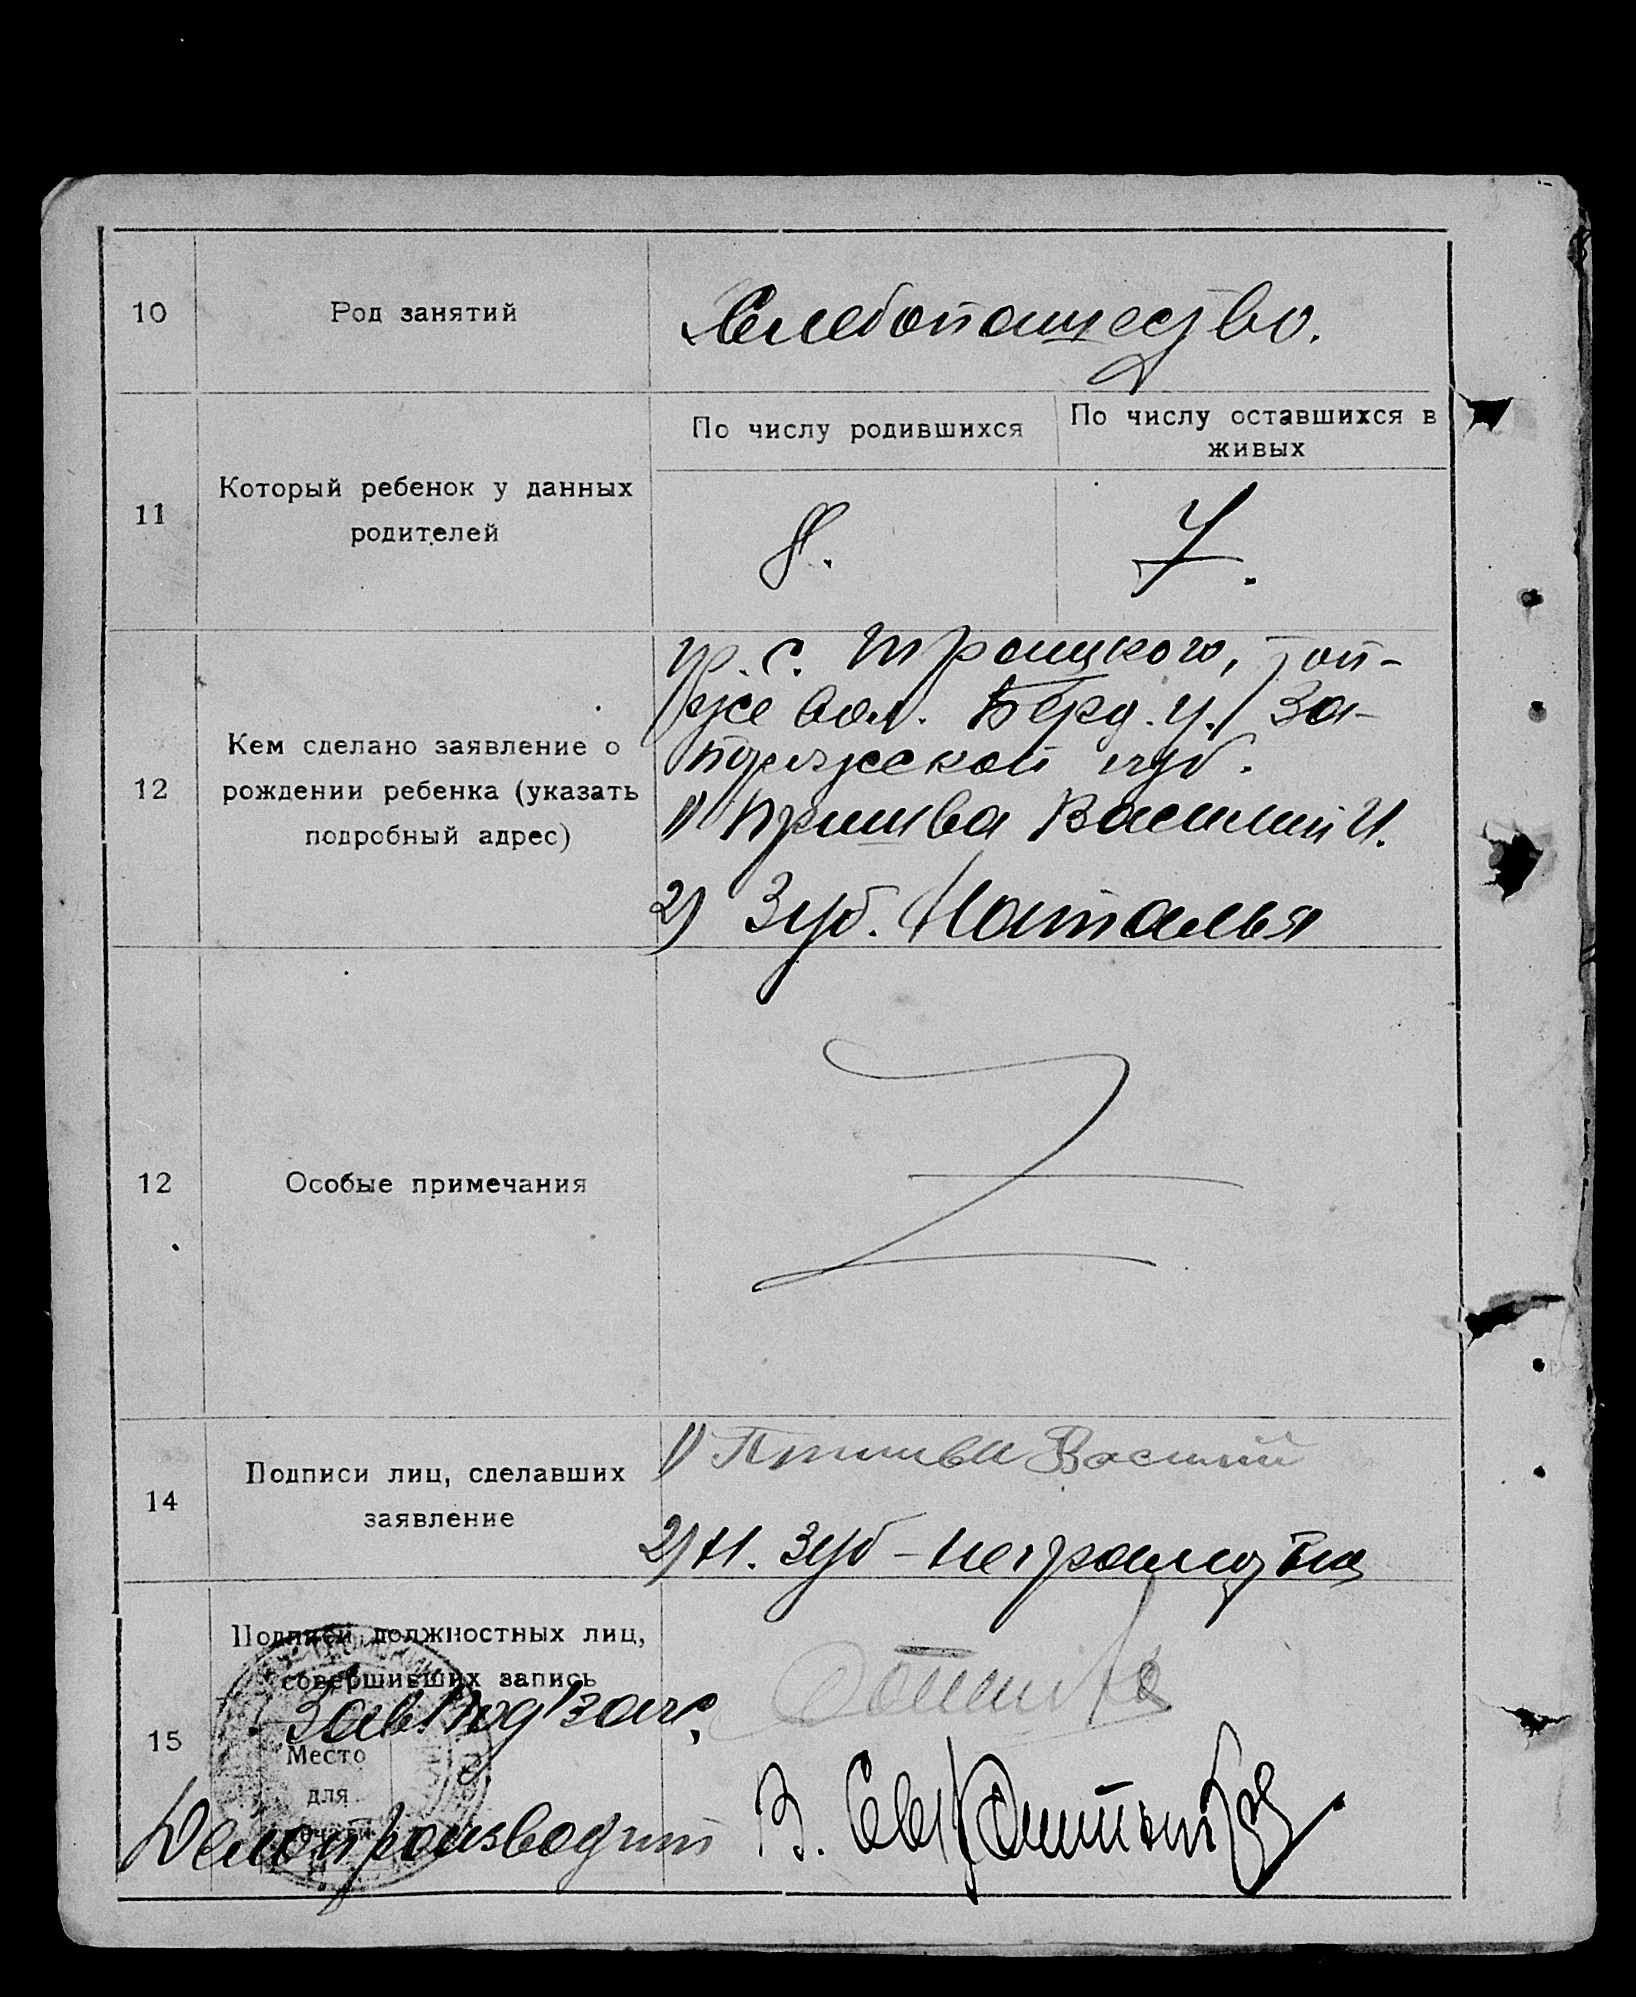 10 Род занятий Хлебопашество.
11 Который ребенок у данных родителей
По числу родившихся
По числу оставшихся в живых
8.
7.
12 Кем сделано заявление о рождении ребенка (указать подробный адрес)
гр. с. Троицкого, той-
же вол. Берд. у. За-
порожской губ.
1) Пришва Василий И.
2) Зуб. Наталья
12 Особые примечания
14 Подписи лиц, сделавших заявление
1) Пришва Василий
2) Н. Зуб - неграмотна
15 Подписи должностных лиц, совершивших запись
Зав. Подзагс,
Место
для
Делопроизводит